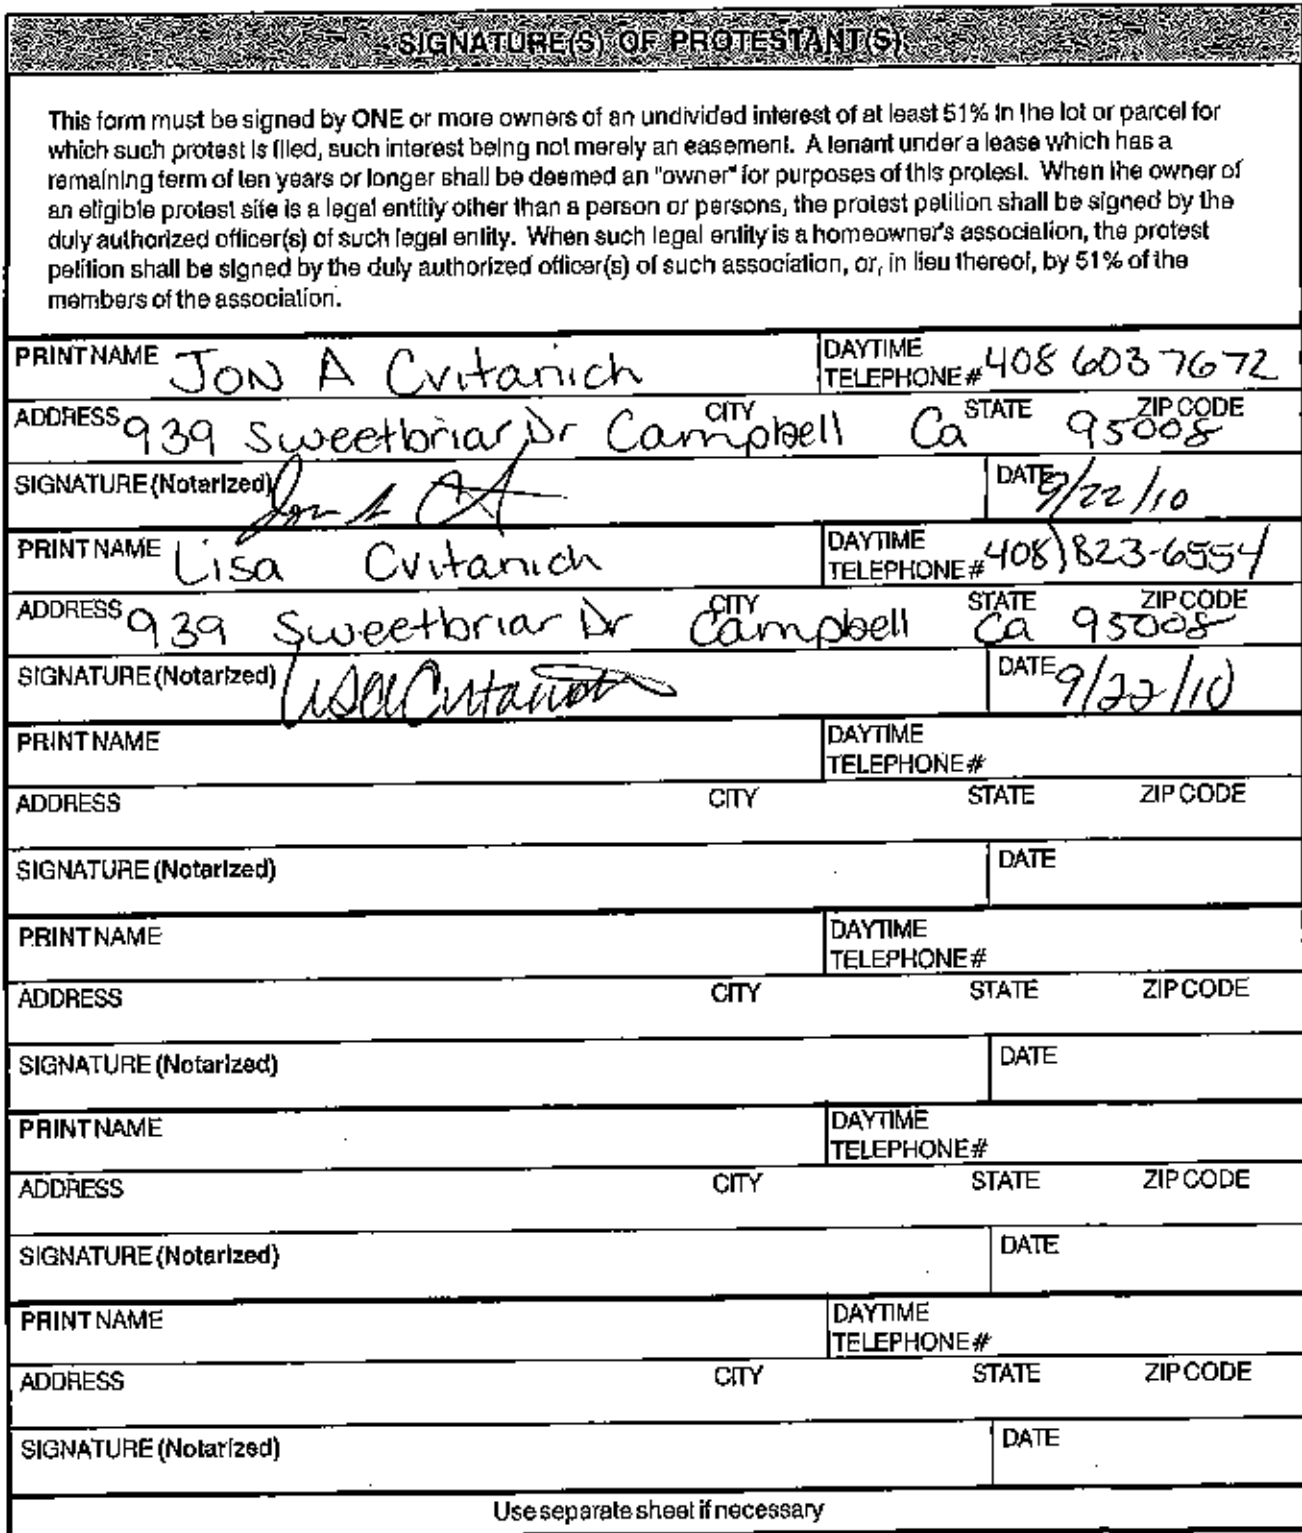 SIGNATURE(S) OF PROTESTANT(S)
This form must be signed by ONE or more owners of an undivided interest of at least 51% in the lot or parcel for
which such protest is filed, such interest being not merely an easement. A tenant under a lease which has a
remaining term of ten years or longer shall be deemed an "owner" for purposes of this protest. When the owner of
an eligible protest site is a legal entitiy other than a person or persons, the protest petition shall be signed by the
duly authorized officer(s) of such legal entity. When such legal entity is a homeowner's association, the protest
petition shall be signed by the duly authorized officer(s) of such association, or, in lieu thereof, by 51% of the
members of the association.
PRINT NAME JON A Cvitanich DAYTIME TELEPHONE # 408 603 7672
ADDRESS 939 Sweetbriar Dr CITY Campbell STATE Ca ZIP CODE 95008
SIGNATURE (Notarized) DATE 9/22/10
PRINT NAME Lisa Cvitanich DAYTIME TELEPHONE # 408) 823-6554
ADDRESS 939 Sweetbriar Dr CITY Campbell STATE Ca ZIP CODE 95008
SIGNATURE (Notarized) Lisa Cvitanich DATE 9/22/10
PRINT NAME DAYTIME TELEPHONE #
ADDRESS CITY STATE ZIP CODE
SIGNATURE (Notarized) DATE
PRINT NAME DAYTIME TELEPHONE #
ADDRESS CITY STATE ZIP CODE
SIGNATURE (Notarized) DATE
PRINT NAME DAYTIME TELEPHONE #
ADDRESS CITY STATE ZIP CODE
SIGNATURE (Notarized) DATE
PRINT NAME DAYTIME TELEPHONE #
ADDRESS CITY STATE ZIP CODE
SIGNATURE (Notarized) DATE
Use separate sheet if necessary